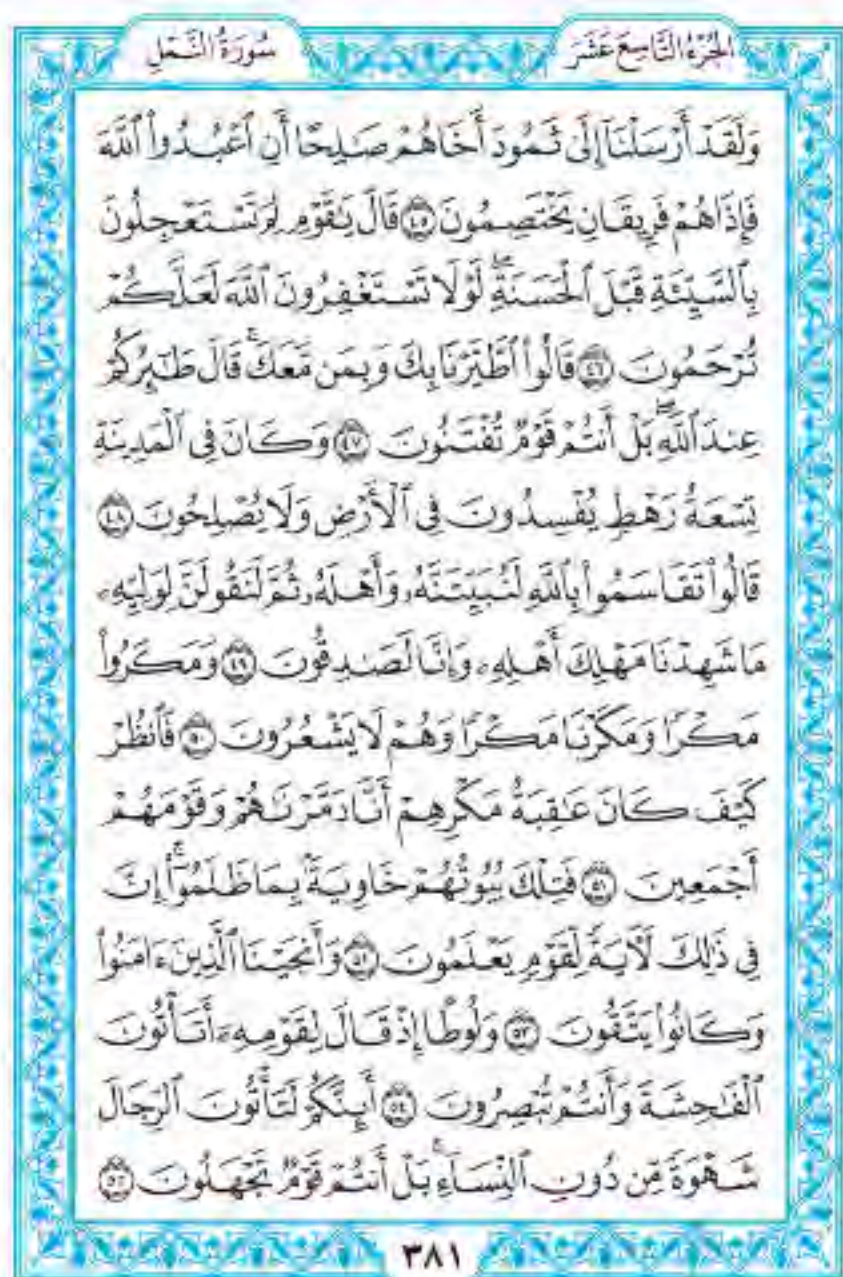 الجزء التاسع عشر
سورة النمل
وَلَقَدْ أَرْسَلْنَآ إِلَىٰ ثَمُودَ أَخَاهُمْ صَـٰلِحًا أَنِ ٱعْبُدُوا۟ ٱللَّهَ
فَإِذَا هُمْ فَرِيقَانِ يَخْتَصِمُونَ ٤٥ قَالَ يَـٰقَوْمِ لِمَ تَسْتَعْجِلُونَ
بِٱلسَّيِّئَةِ قَبْلَ ٱلْحَسَنَةِ ۖ لَوْلَا تَسْتَغْفِرُونَ ٱللَّهَ لَعَلَّكُمْ
تُرْحَمُونَ ٤٦ قَالُوا۟ ٱطَّيَّرْنَا بِكَ وَبِمَن مَّعَكَ ۚ قَالَ طَـٰٓئِرُكُمْ
عِندَ ٱللَّهِ ۖ بَلْ أَنتُمْ قَوْمٌ تُفْتَنُونَ ٤٧ وَكَانَ فِى ٱلْمَدِينَةِ
تِسْعَةُ رَهْطٍ يُفْسِدُونَ فِى ٱلْأَرْضِ وَلَا يُصْلِحُونَ ٤٨
قَالُوا۟ تَقَاسَمُوا۟ بِٱللَّهِ لَنُبَيِّتَنَّهُۥ وَأَهْلَهُۥ ثُمَّ لَنَقُولَنَّ لِوَلِيِّهِۦ
مَا شَهِدْنَا مَهْلِكَ أَهْلِهِۦ وَإِنَّا لَصَـٰدِقُونَ ٤٩ وَمَكَرُوا۟
مَكْرًا وَمَكَرْنَا مَكْرًا وَهُمْ لَا يَشْعُرُونَ ٥٠ فَٱنظُرْ
كَيْفَ كَانَ عَـٰقِبَةُ مَكْرِهِمْ أَنَّا دَمَّرْنَـٰهُمْ وَقَوْمَهُمْ
أَجْمَعِينَ ٥١ فَتِلْكَ بُيُوتُهُمْ خَاوِيَةًۢ بِمَا ظَلَمُوٓا۟ ۗ إِنَّ
فِى ذَٰلِكَ لَـَٔايَةً لِّقَوْمٍ يَعْلَمُونَ ٥٢ وَأَنجَيْنَا ٱلَّذِينَ ءَامَنُوا۟
وَكَانُوا۟ يَتَّقُونَ ٥٣ وَلُوطًا إِذْ قَالَ لِقَوْمِهِۦٓ أَتَأْتُونَ
ٱلْفَـٰحِشَةَ وَأَنتُمْ تُبْصِرُونَ ٥٤ أَئِنَّكُمْ لَتَأْتُونَ ٱلرِّجَالَ
شَهْوَةً مِّن دُونِ ٱلنِّسَآءِ ۚ بَلْ أَنتُمْ قَوْمٌ تَجْهَلُونَ ٥٥
٣٨١